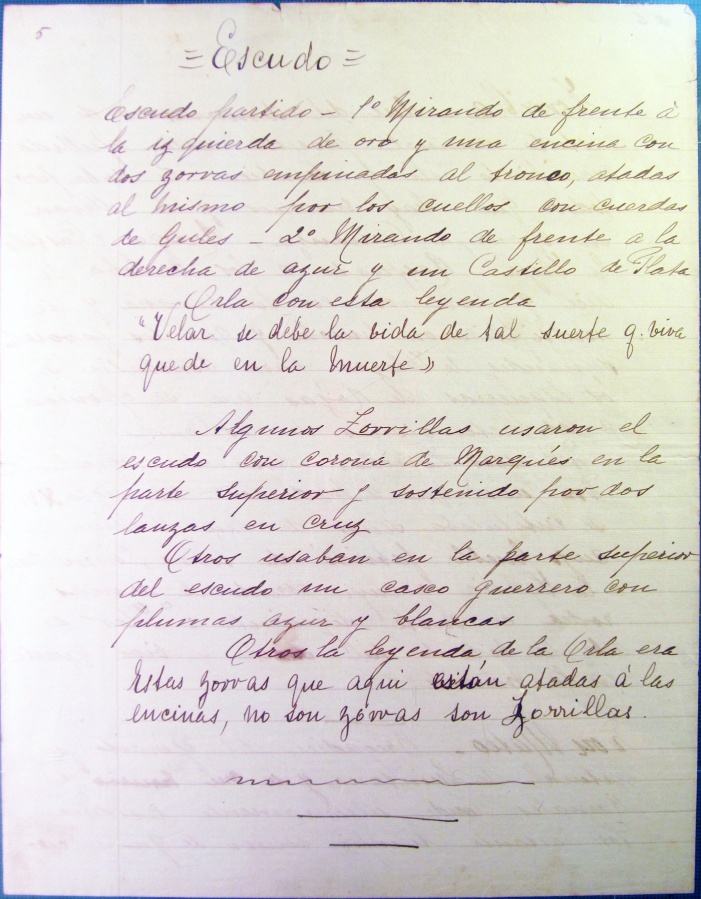 5
= Escudo =
Escudo partido - 1º Mirando de frente á
la izquierda de oro y una encina con
dos zorras empinadas al tronco, atadas
al mismo por los cuellos con cuerdas
de Gules - 2º Mirando de frente a la
derecha de azur y un Castillo de Plata
Orla con esta leyenda
"Velar se debe la vida de tal suerte q. viva
quede en la muerte"
Algunos Zorrillas usaron el
escudo con corona de Marqués en la
parte superior y sostenido por dos
lanzas en cruz
Otros usaban en la parte superior
del escudo un casco guerrero con
plumas azur y blancas
Otros la leyenda de la Orla era
Estas zorras que aqui están atadas á las
encinas, no son zorras son Zorrillas.